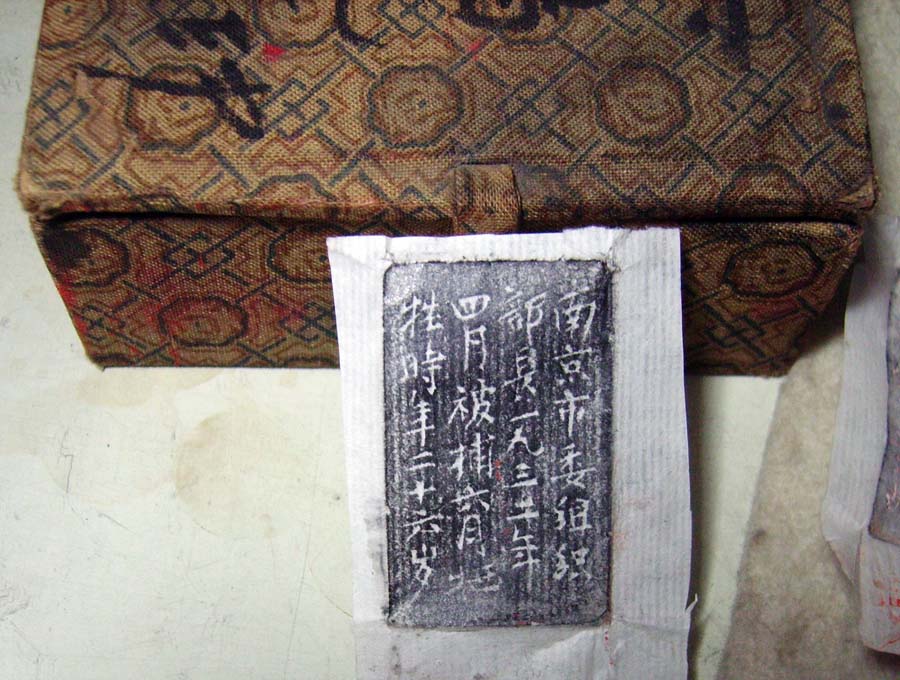 南京市委组織
部長一九三二年
四月被捕六月牺
牲時年二十六岁